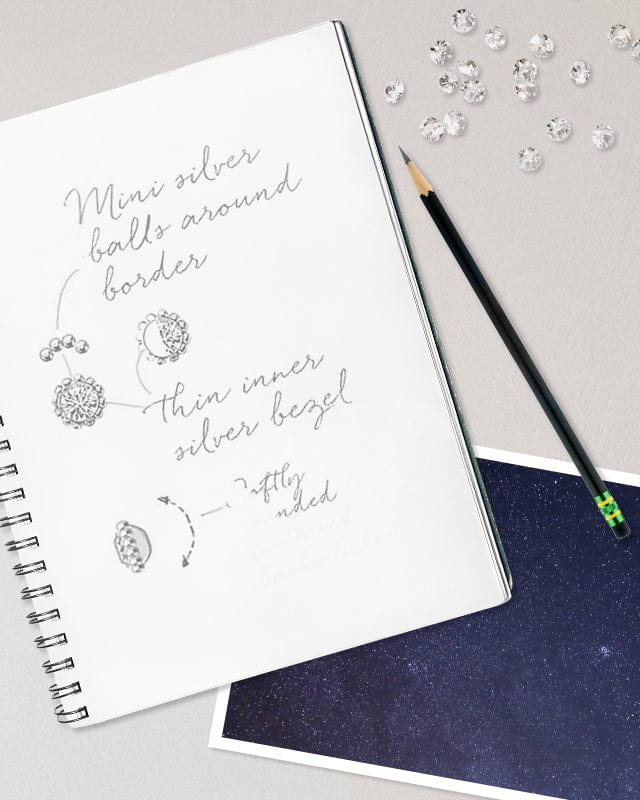 Mini silver
balls around
border
thin inner
silver bezel
Softly
nded